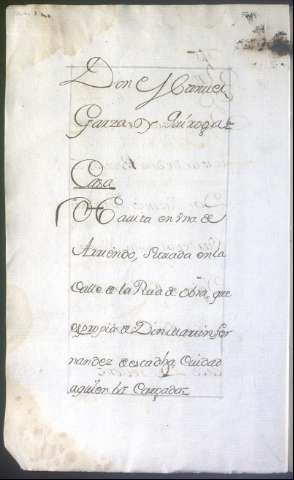 Don Manuel
Garza y Quiroga
Casa
Havita en Vna de
Arriendo, situada en la
Calle de la Rua de obra, que
es propia de Dn Martin fer
nandez de esta dha Ciudad
a quien la